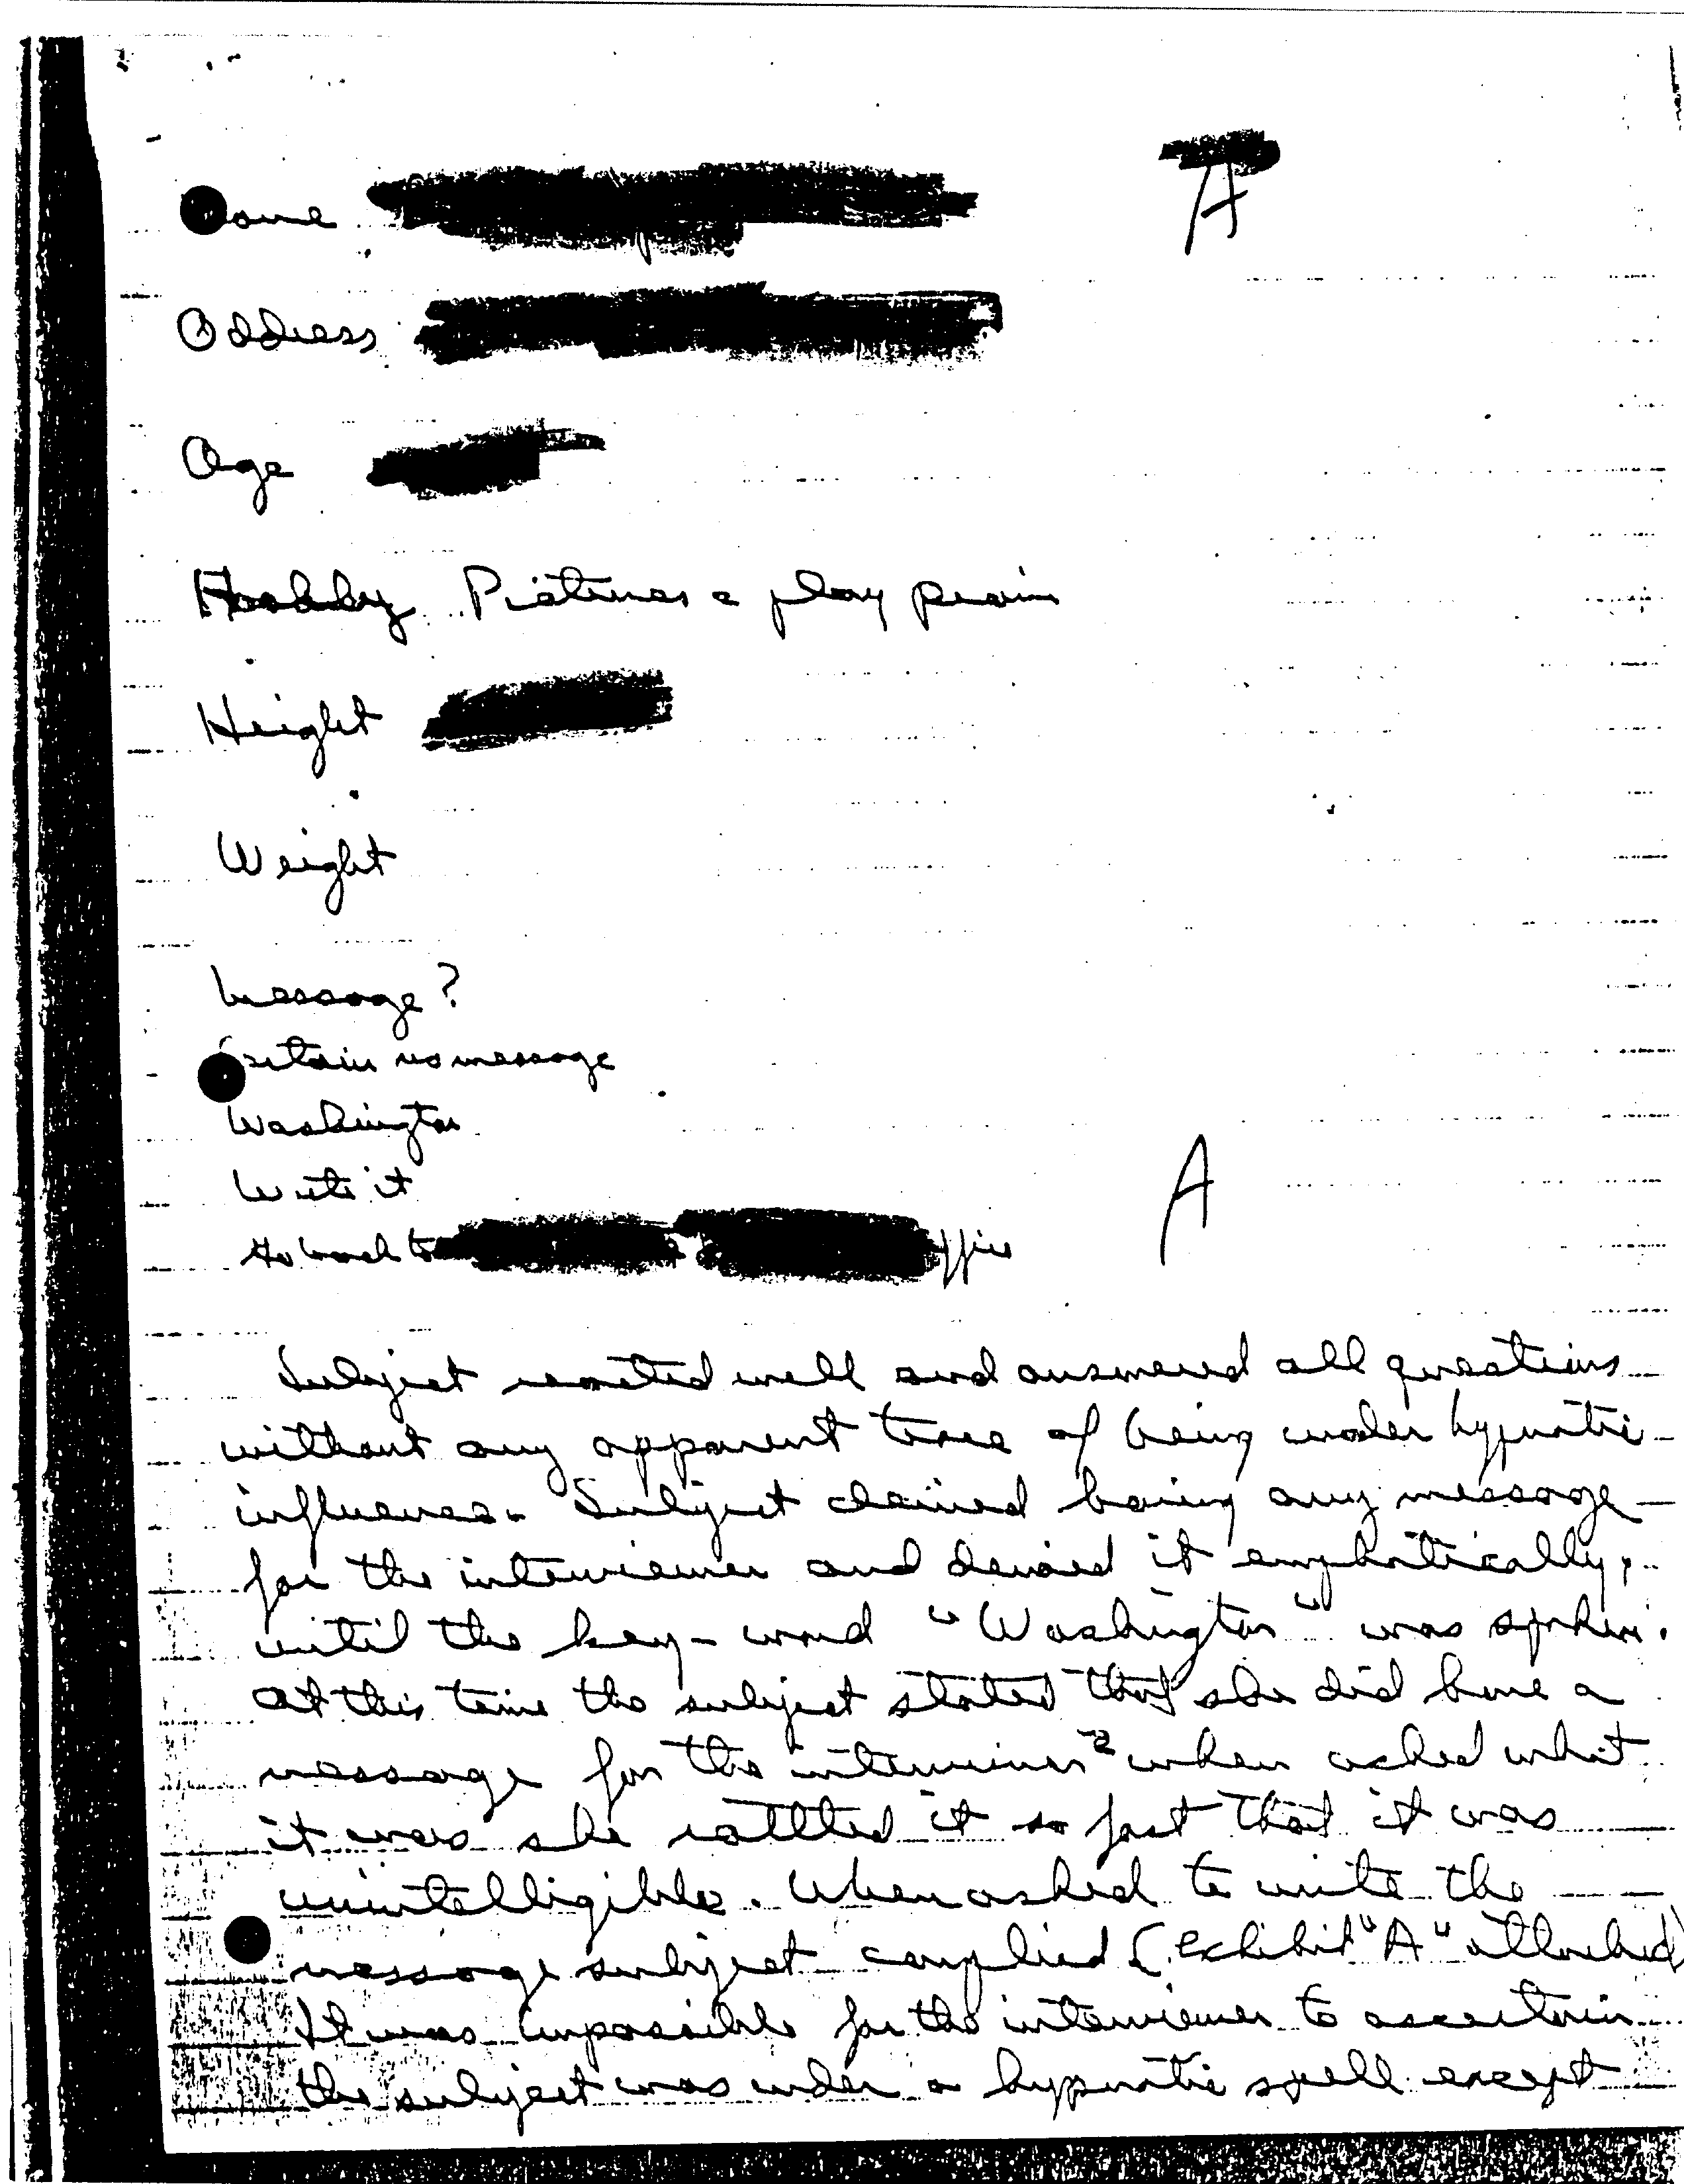 Name
A
Address
Age
Hobby Pictures & play piano
Height
Weight
Message?
Certain no message
Washington
Write it
Go back to office
A
Subject reacted well and answered all questions
without any apparent trace of being under hypnotic
influence. Subject denied having any message
for the interviewer and denied it emphatically,
until the key-word "Washington" was spoken.
At this time the subject stated that she did have a
message for the interviewer & when asked what
it was she rattled it so fast that it was
unintelligible. When asked to write the
message subject complied (exhibit "A" attached)
It was impossible for the interviewer to ascertain
the subject was under a hypnotic spell except